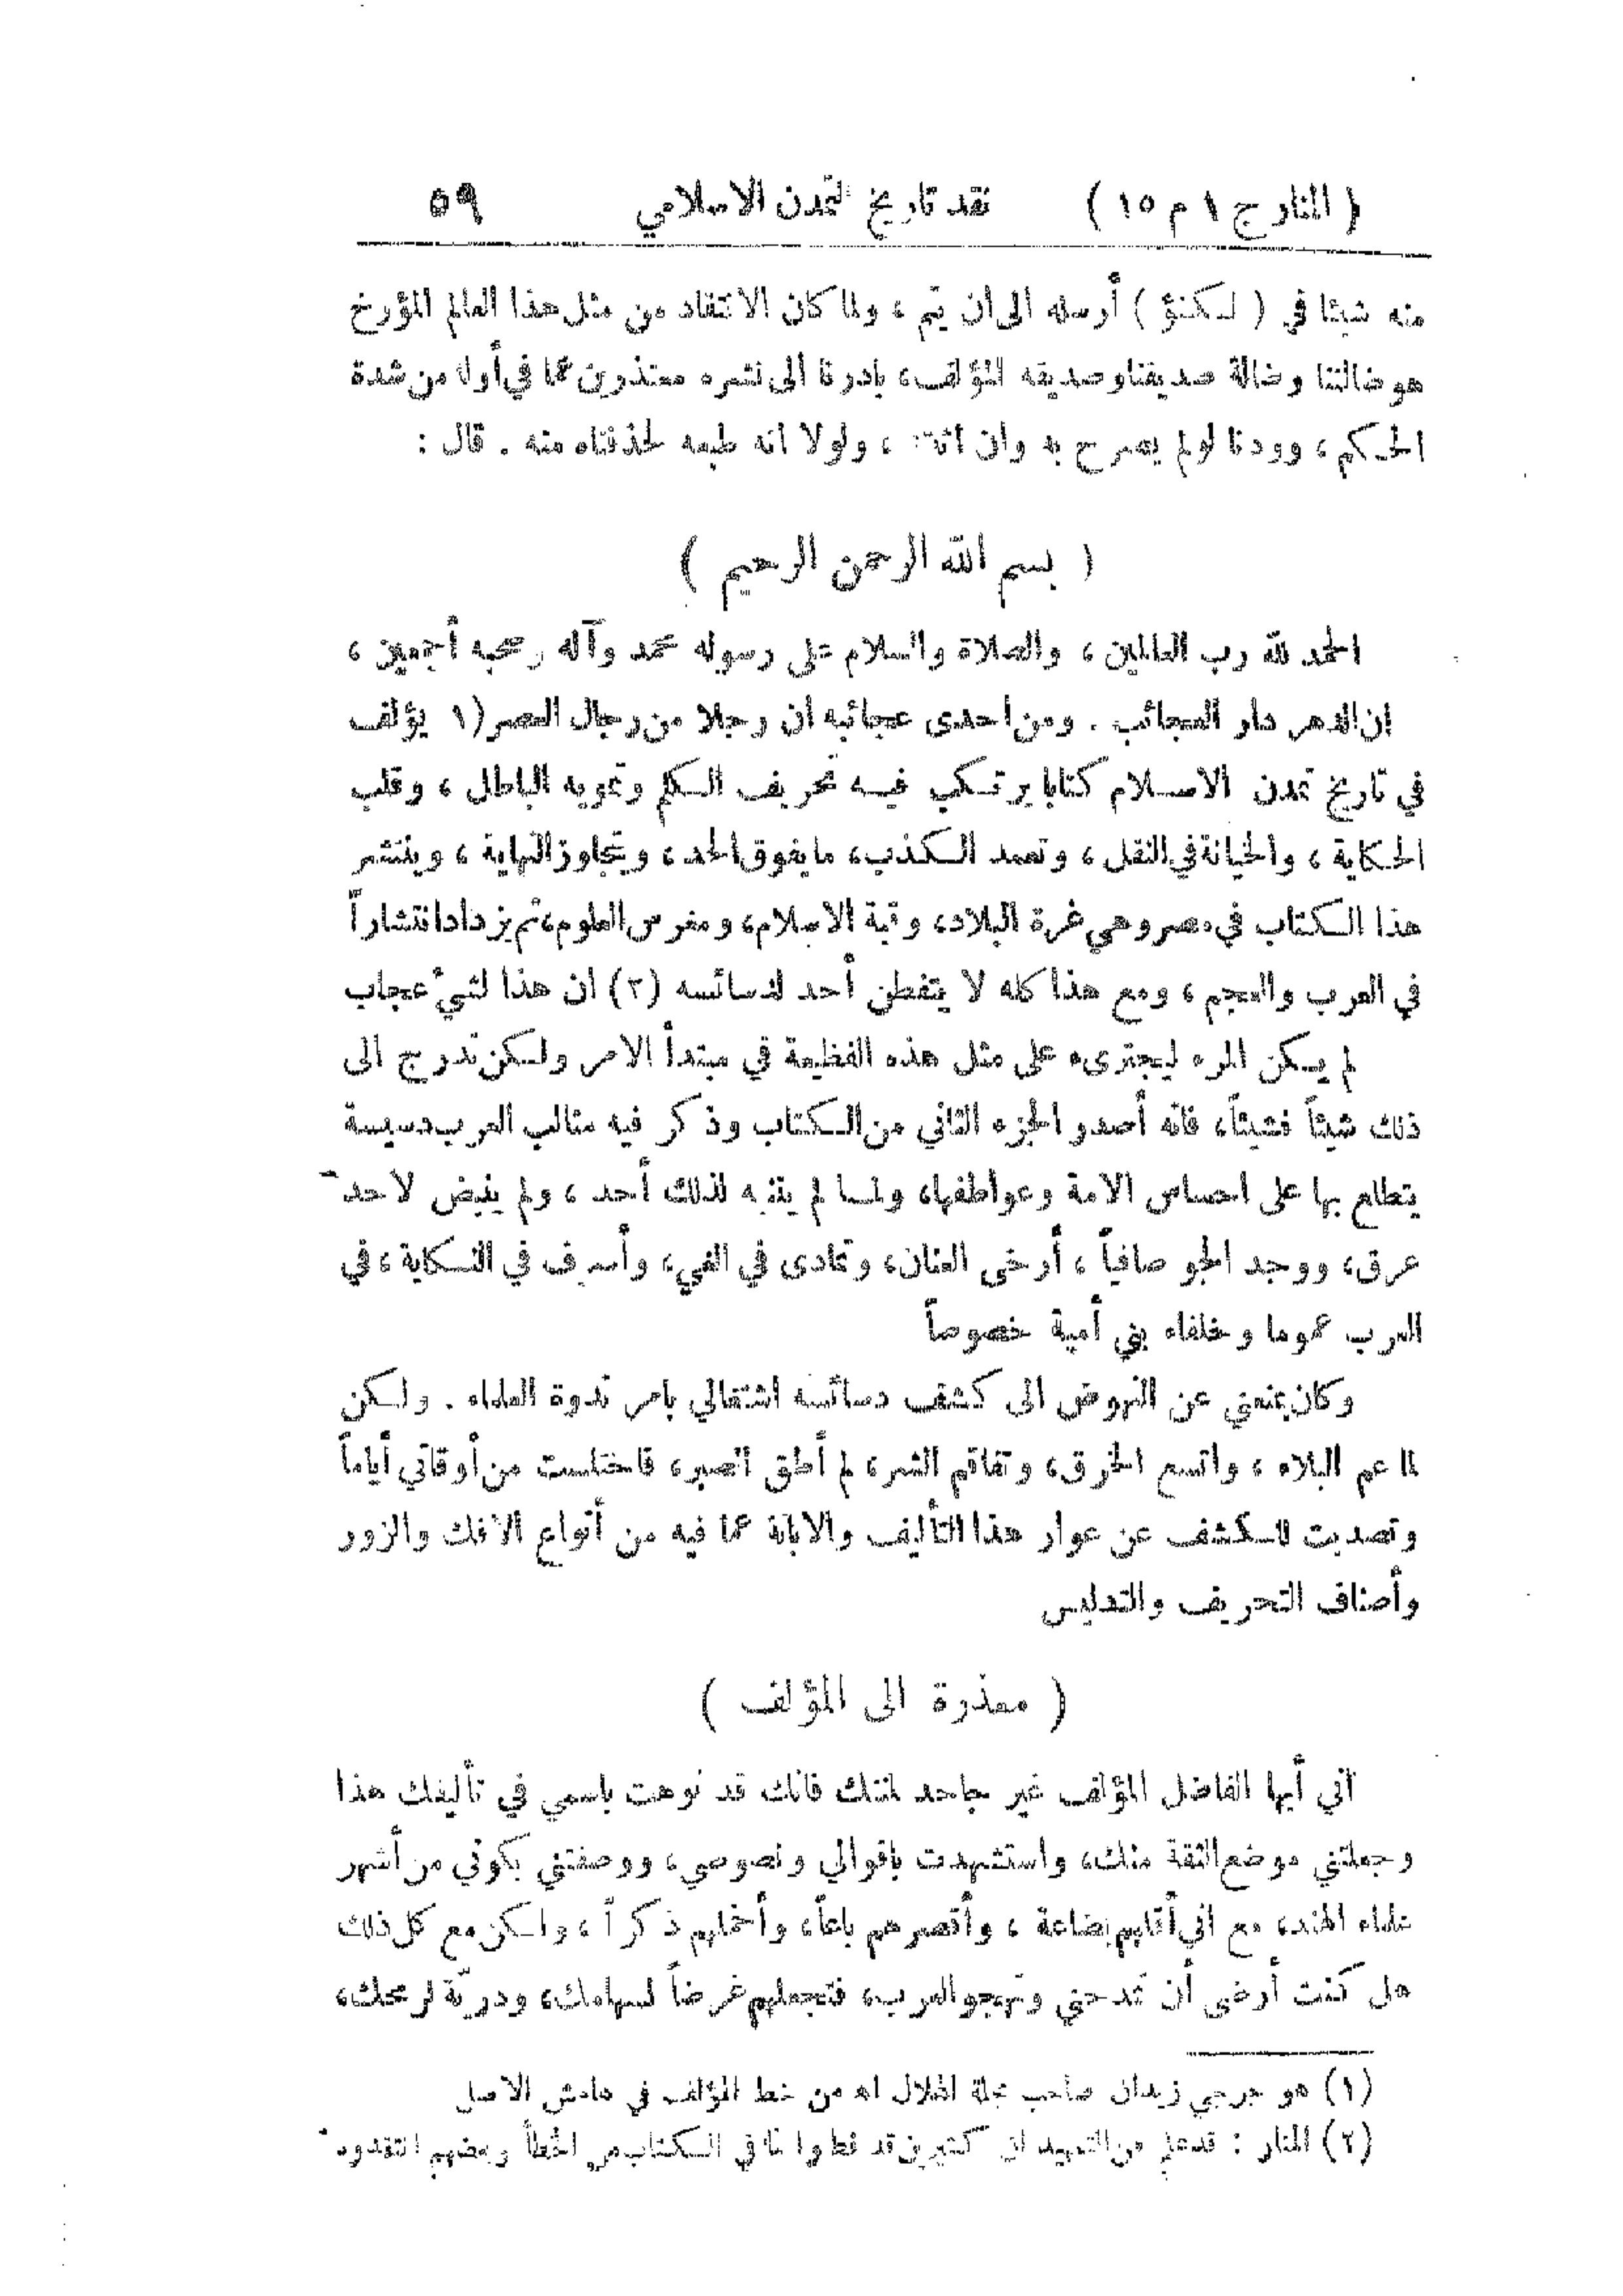 ( المنار ج ١ م ١٥ ) نقد تاريخ التمدن الاسلامي ٥٩
منه شيئا في ( لكنؤ ) أرسله الى ان يتم ، ولما كان الانتقاد من مثل هذا العالم المؤرخ
هو ضالتنا وضالة صديقنا وصديقه المؤلف، بادرنا الى نشره معتذرين عما في أوله من شدة
الحكم ، وودنا لو لم يصرح به وان اثبته ، ولولا انه طبعه لحذفناه منه . قال :
( بسم الله الرحمن الرحيم )
الحمد لله رب العالمين ، والصلاة والسلام على رسوله محمد وآله وصحبه أجمعين ،
ان الدهر دار العجائب . ومن احدى عجائبه ان رجلا من رجال العصر (١ يؤلف
في تاريخ تمدن الاسلام كتابا يرتكب فيه تحريف الكلم وتمويه الباطل ، وقلب
الحكاية ، والخيانة في النقل ، وتعمد الكذب، ما يفوق الحد ، ويتجاوز النهاية ، وينتشر
هذا الكتاب في مصر وهي غرة البلاد، وقبة الاسلام، ومغرس العلوم، ثم يزداد انتشاراً
في العرب والعجم ، ومع هذا كله لا يتفطن أحد لدسائسه (٢) ان هذا لشيء عجاب
لم يكن المرء ليجترىء على مثل هذه الفظيعة في مبتدأ الامر ولكن تدرج الى
ذلك شيئاً فشيئاً، فانه أصدر الجزء الثاني من الكتاب وذكر فيه مثالب العرب دسيسة
يتطلع بها على احساس الامة وعواطفها، ولما لم يتنبه لذلك أحد ، ولم ينبض لاحد
عرق، ووجد الجو صافياً ، أرخى العنان، وتمادى في الغي، وأسرف في النكاية ، في
العرب عموما وخلفاء بني أمية خصوصاً
وكان يمنعني عن النهوض الى كشف دسائسه اشتغالي بامر ندوة العلماء . ولكن
لما عم البلاء ، واتسع الخرق، وتفاقم الشر، لم أطق الصبر، فاختلست من أوقاتي أياماً
وتصديت للكشف عن عوار هذا التأليف والابانة عما فيه من أنواع الافك والزور
وأصناف التحريف والتدليس
( معذرة الى المؤلف )
اني أيها الفاضل المؤلف غير جاحد لمننك فانك قد نوهت باسمي في تأليفك هذا
وجعلتني موضع الثقة منك، واستشهدت باقوالي ونصوصي، ووصفتني بكوني من أشهر
علماء الهند، مع اني أقلهم بضاعة ، وأقصرهم باعاً، وأخملهم ذكراً ، ولكن مع كل ذلك
هل كنت أرضى أن تمدحني وتهجو العرب، فتجعلهم غرضاً لسهامك، ودريّة لرمحك،
(١) هو جرجي زيدان صاحب مجلة الهلال اه من خط المؤلف في هامش الاصل
(٢) المنار : قد علم من التمهيد ان كثيرين قد فطنوا لما في الكتاب من الخطأ وبعضهم انتقدوه